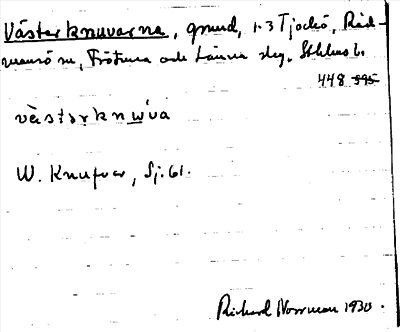 Västerknuvarna, grund, 1-3 Tjockö, Råd-
mansö sn, Frötuna och Länna skg. Sthlms l.
448 595
västərknu̲wa
W. Knufvar, Sj. 61.
Rickard Norrman 1930.